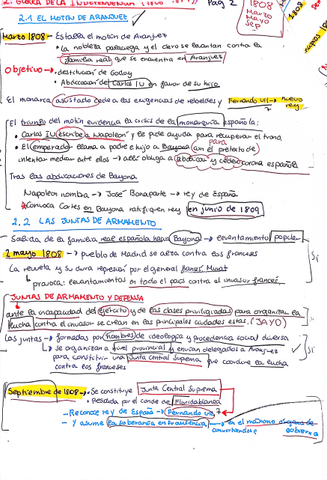 2. GUERRA DE LA INDEPENDENCIA (1808-
Pag 2
1808
Marzo
Mayo
Sep
2.1 EL MOTIN DE ARANJUEZ
Marzo 1808 - Estalla el motín de Aranjuez
↳ La nobleza palaciega y el clero se levantan contra la
familia real que se encontraba en Aranjuez
Objetivo
• destitución de Godoy
• Abdicación del Carlos IV en favor de su hijo
El monarca asustado cede a las exigencias de rebeldes y Fernando VII → nuevo
rey
El triunfo del motín evidencia la crisis de la monarquía española:
• Carlos IV escribe a Napoleón y le pide ayuda para recuperar el trono
para
• El emperador llama a padre e hijo a Bayona con el pretexto de
intentar mediar entre ellos → les obliga a abdicar y ceder corona española
Tras las abdicaciones de Bayona
Napoleón nombra → José Bonaparte → rey de España
Convoca Cortes en Bayona ratifiquen rey en junio de 1808
2.2 LAS JUNTAS DE ARMAMENTO
Salida de la familia real española hacia Bayona → levantamiento popular
2 mayo 1808 → pueblo de Madrid se alza contra los franceses
La revuelta y su dura represión por el general francés Murat
provoca: levantamientos en todo el país contra el invasor francés.
JUNTAS DE ARMAMENTO Y DEFENSA
ante la incapacidad del ejército y de las clases privilegiadas para organizar la
lucha contra el invasor se crean en las principales ciudades estas. (JAYD)
Las juntas → formadas por hombres de ideología y procedencia social diversa
↳ se organizan a nivel provincial y envían delegados a Aranjuez
para constituir una Junta Central Suprema que coordine la lucha
contra los franceses
Septiembre de 1808 → • Se constituye Junta Central Suprema
• Presidida por el conde de Floridablanca
- Reconoce rey de España → Fernando VII
- y asume la soberanía en su ausencia → en el